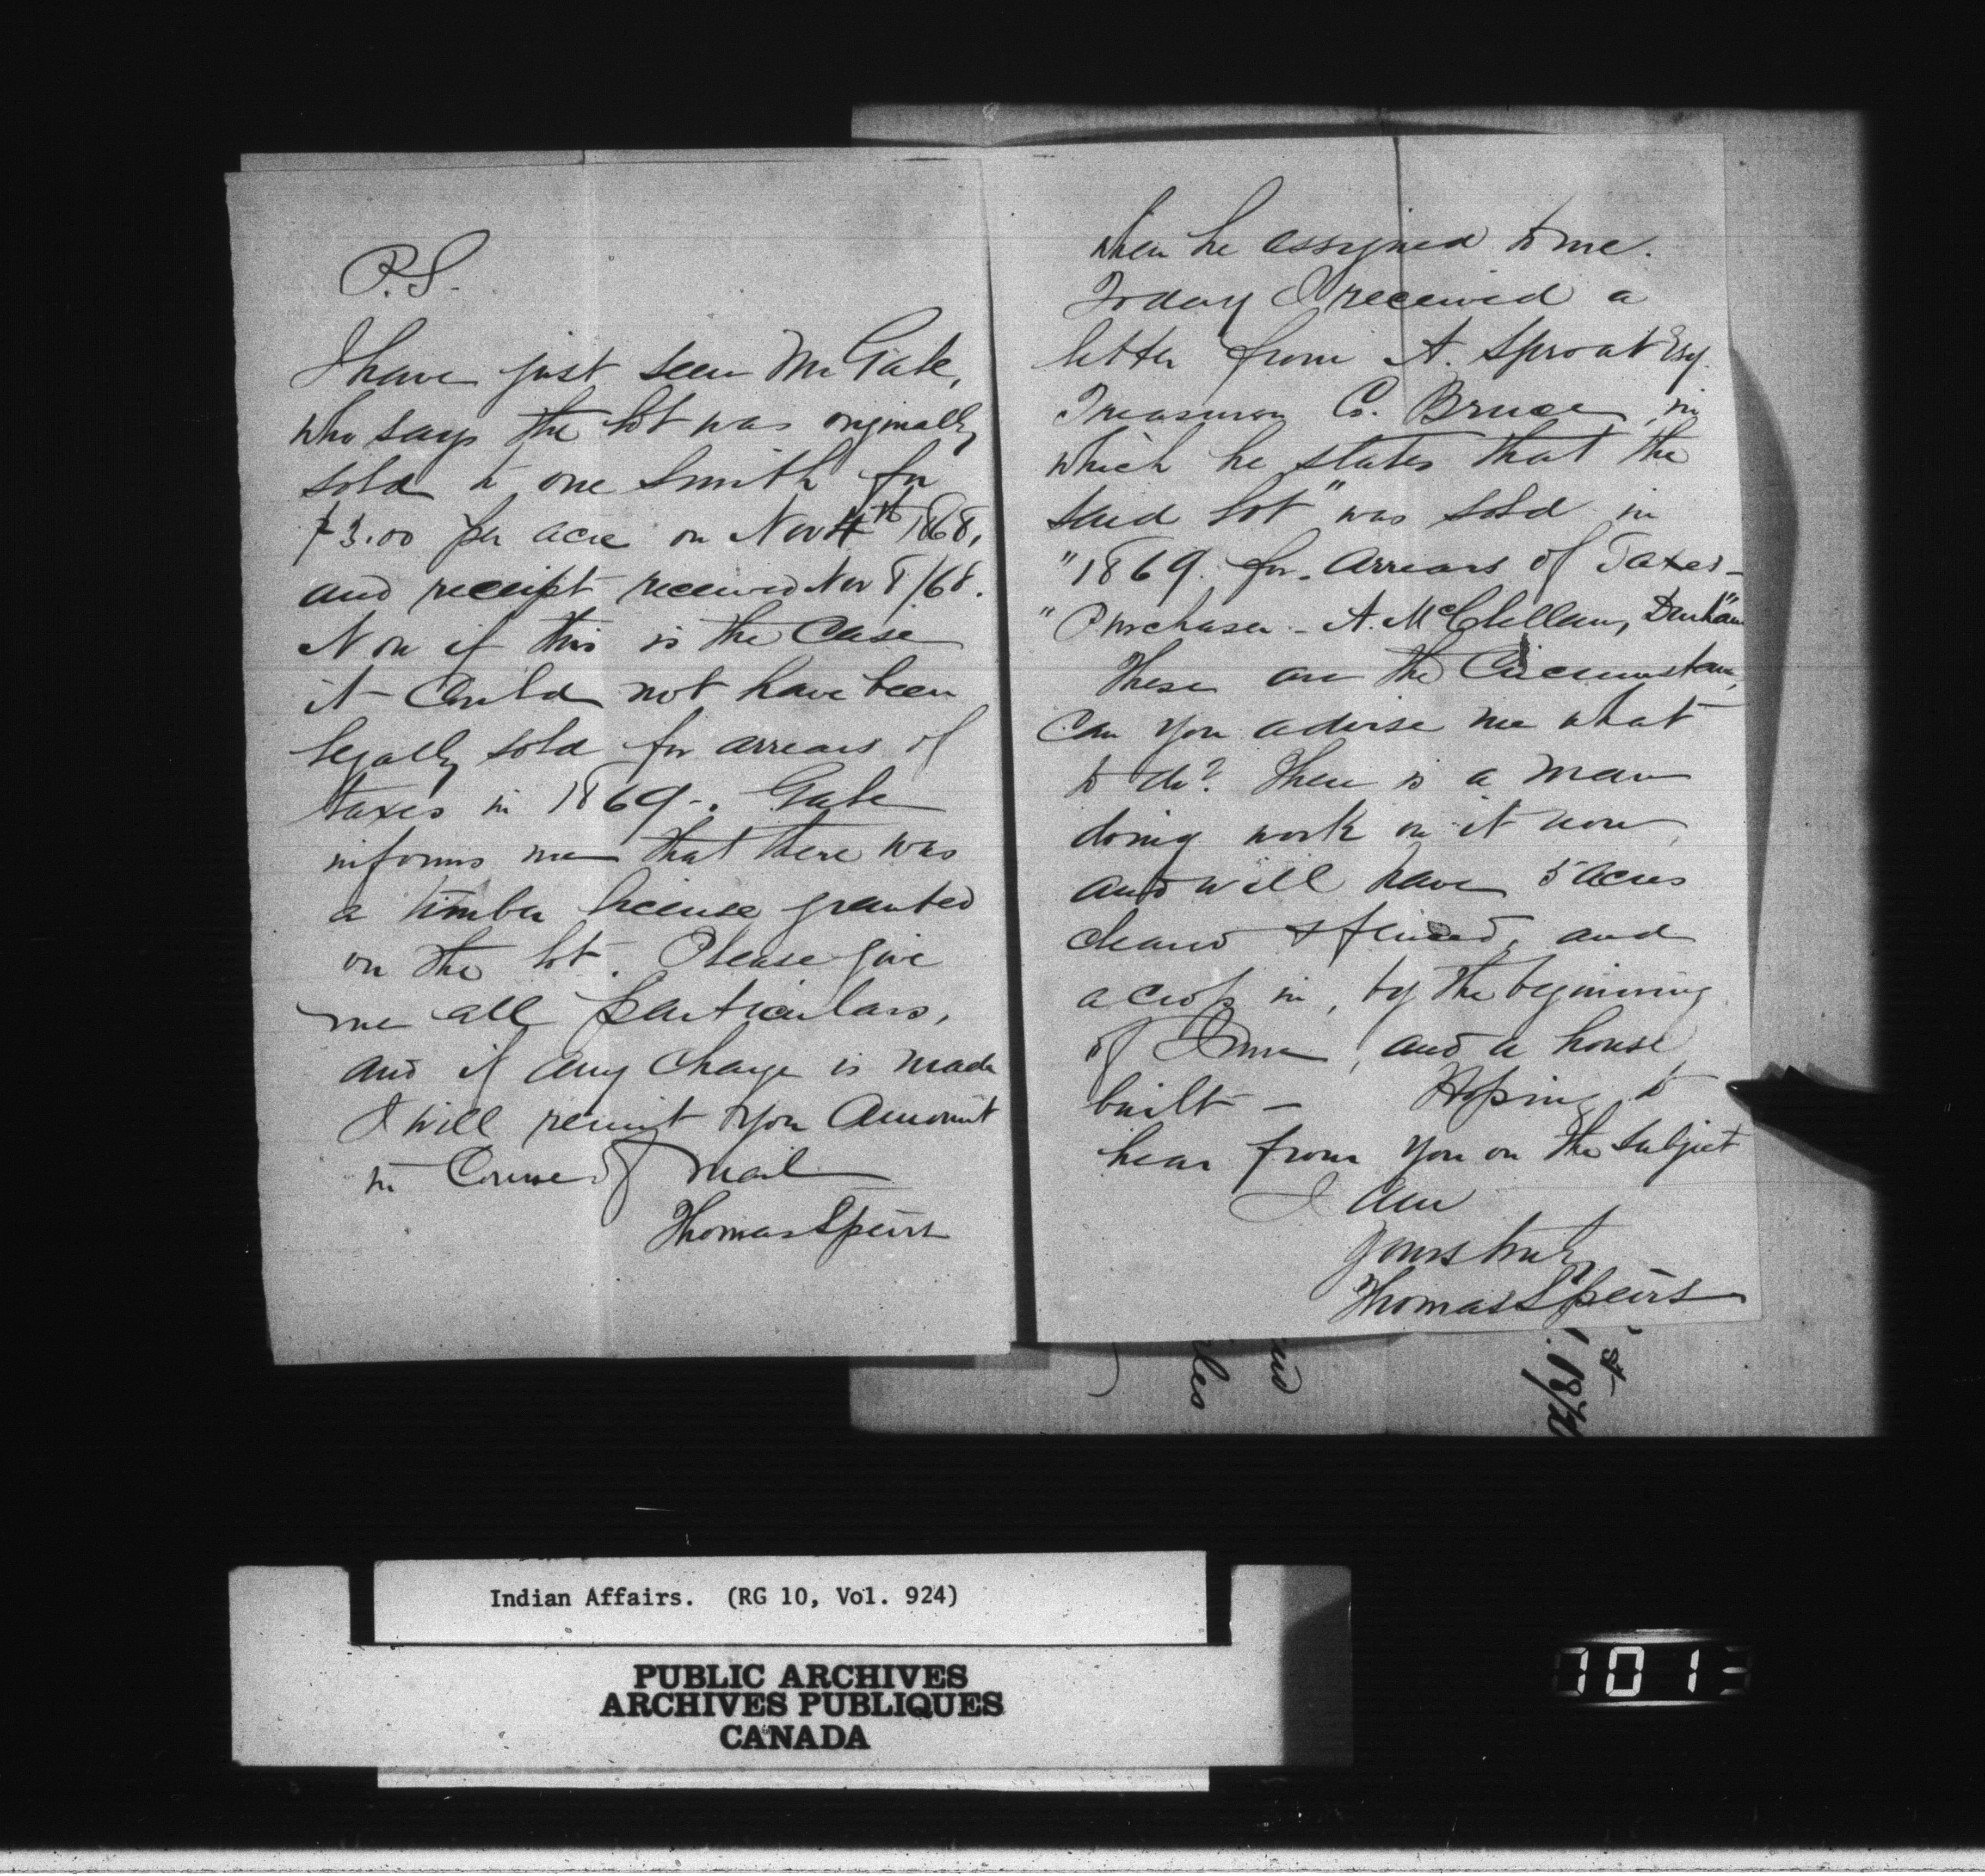 P.S.
I have just seen Mr Gale,
who says the lot was originally
sold to one Smith for
$3.00 per acre on Nov 4th 1868,
and receipt received Nov 8/68.
Now if this is the Case
it Could not have been
legally sold for arrears of
taxes in 1869-. Gale
informs me that there was
a timber license granted
on the lot. Please give
me all particulars,
and if any Charge is made
I will remit you Amount
in Course of Mail
Thomas Speirs
when he assigned to me.
Today I received a
letter from A. Sproat Esq.
Treasurer Co. Bruce, in
which he states that the
said lot "was sold in
"1869. for. Arrears of Taxes -
"Purchaser - A. McClellan, Durham"
These are the Circumstan
Can you advise me what
to do? There is a man
doing work on it now,
and will have 5 acres
cleard & fenced, and
a crop in, by the beginning
of June, and a house
built - Hoping to
hear from you on the subject
I am
yours truly
Thomas Speirs
st
1870
Indian Affairs. (RG 10, Vol. 924)
PUBLIC ARCHIVES
ARCHIVES PUBLIQUES
CANADA
701